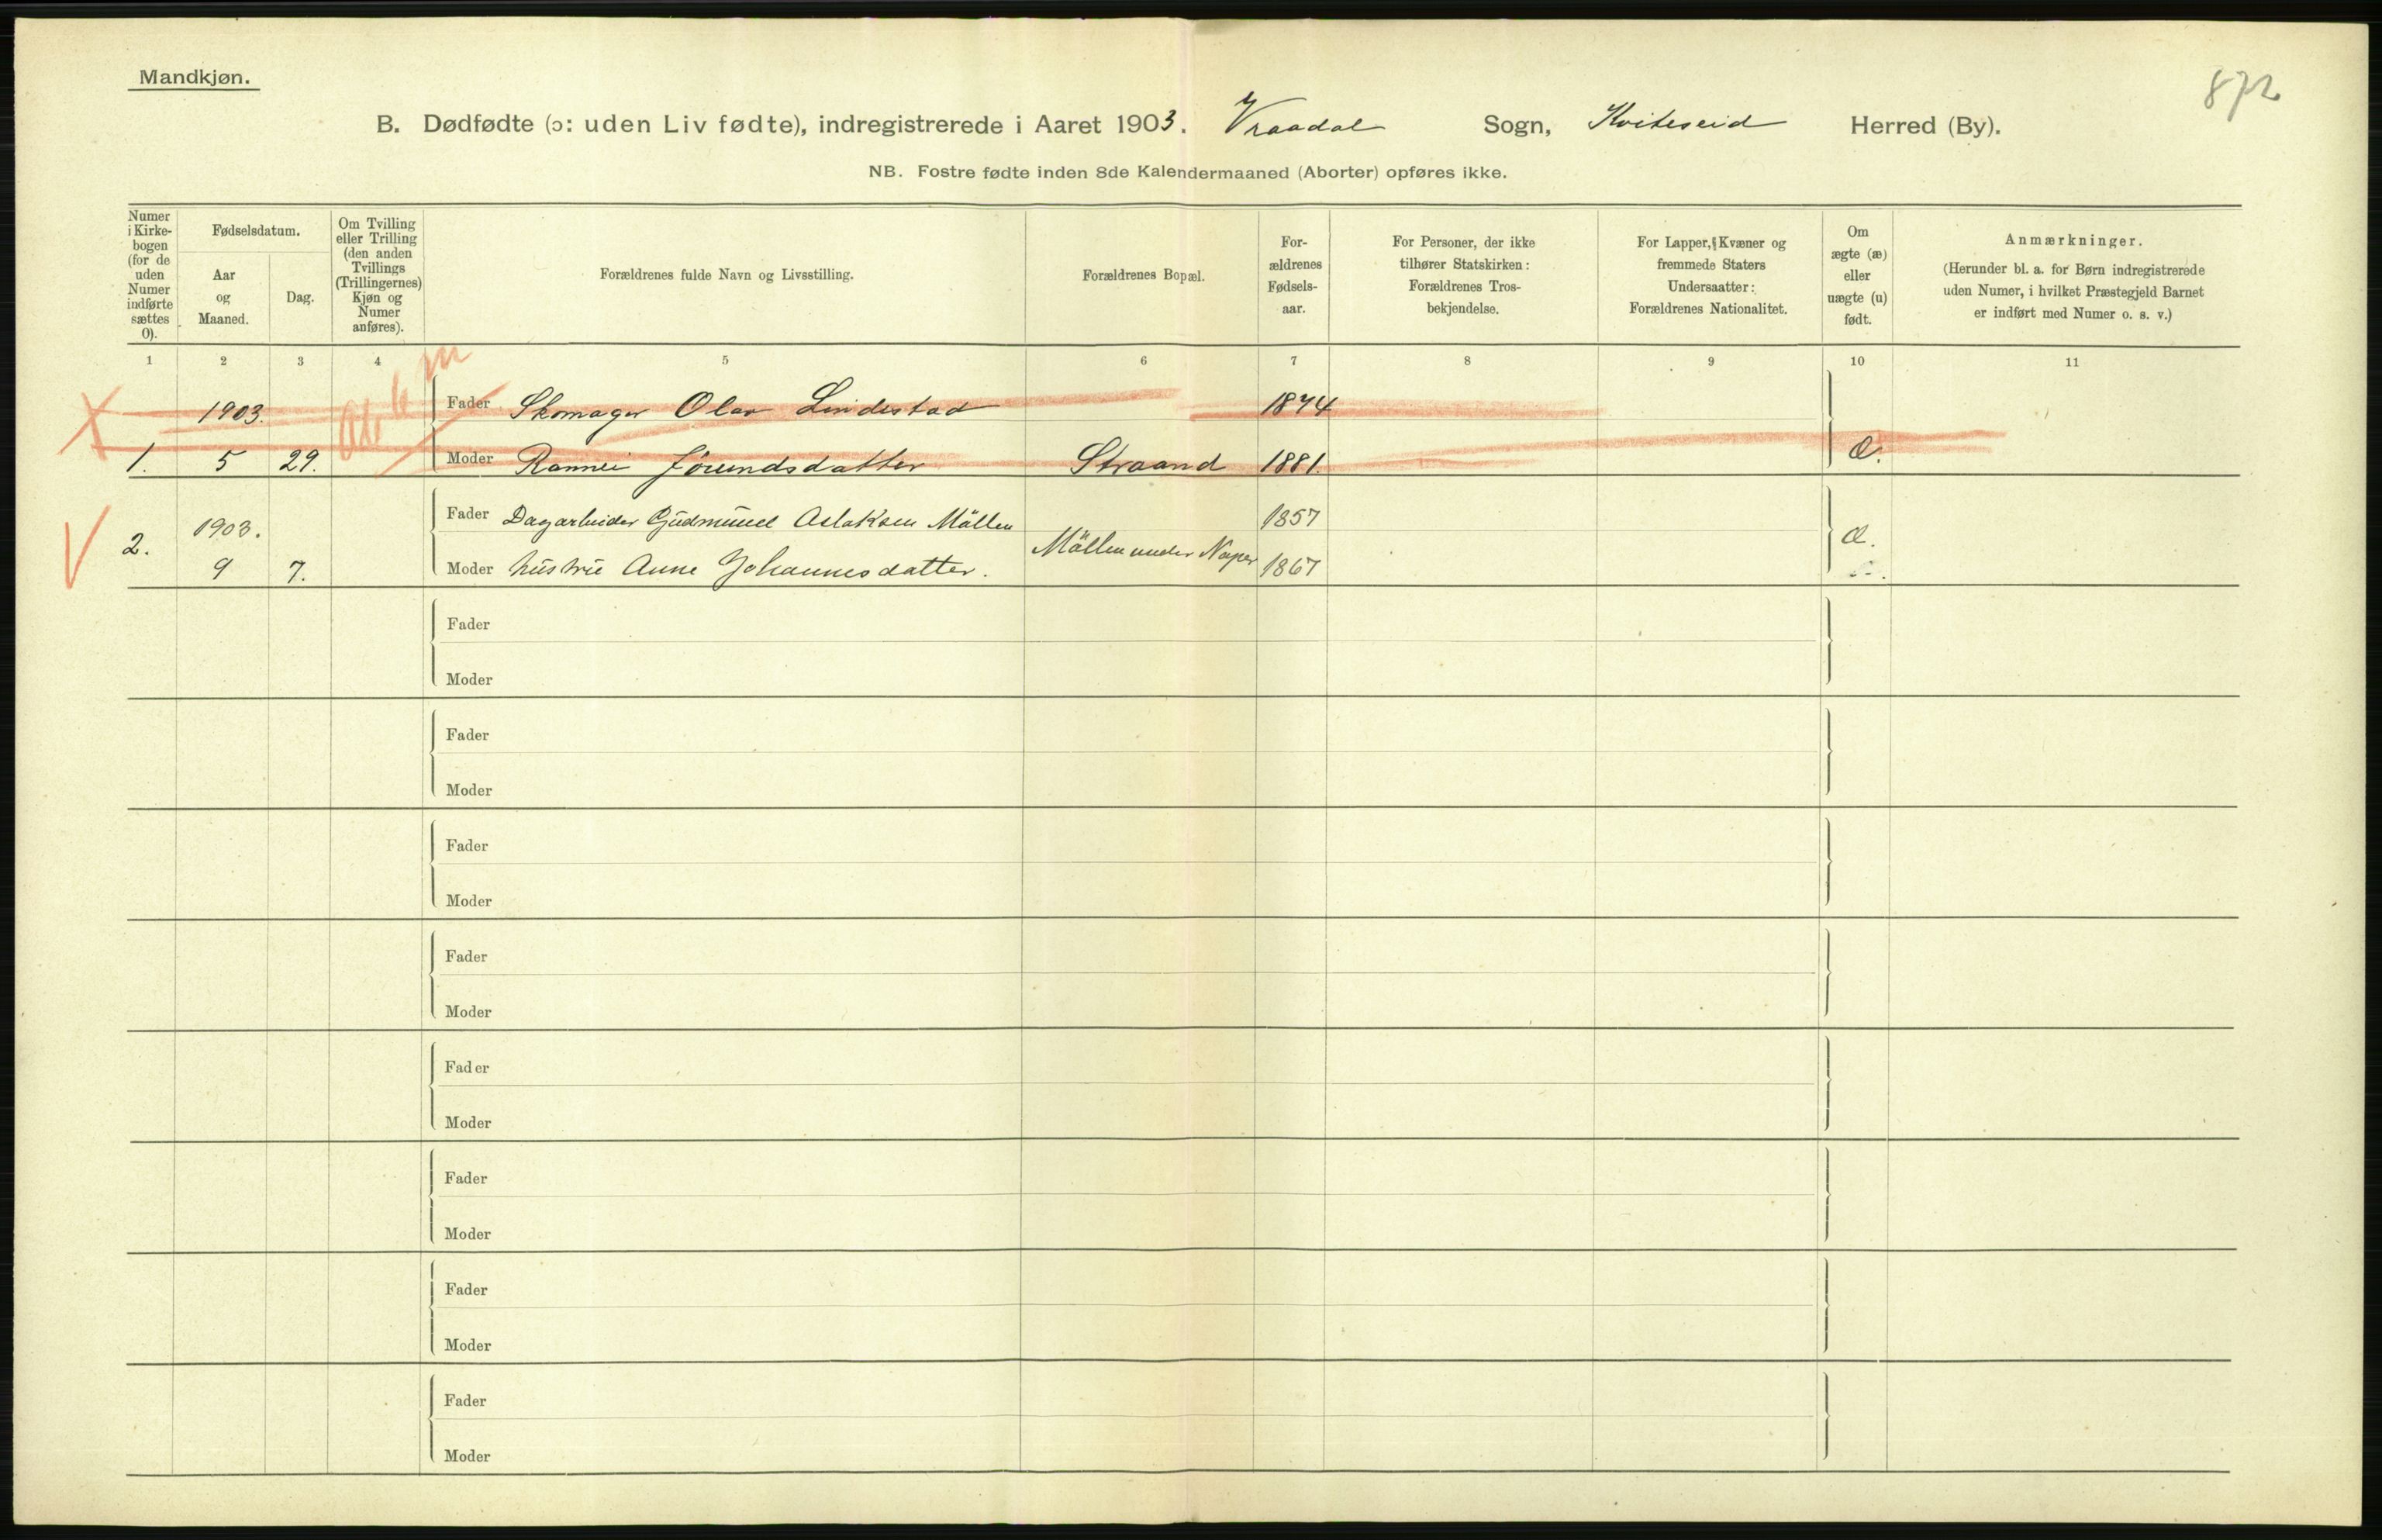 Mandkjøn.
872
B. Dødfødte (ɔ: uden Liv fødte), indregistrerede i Aaret 1903. Vraadal Sogn, Kviteseid Herred (By).
NB. Fostre fødte inden 8de Kalendermaaned (Aborter) opføres ikke.
Numer
i Kirke-
bogen
(for de
uden
Numer
indførte
sættes
0).
Fødselsdatum.
Aar
og
Maaned.
Dag.
Om Tvilling
eller Trilling
(den anden
Tvillings
(Trillingernes)
Kjøn og
Numer
anføres).
Forældrenes fulde Navn og Livsstilling.
Forældrenes Bopæl.
For-
ældrenes
Fødsels-
aar.
For Personer, der ikke
tilhører Statskirken:
Forældrenes Tros-
bekjendelse.
For Lapper, Kvæner og
fremmede Staters
Undersaatter:
Forældrenes Nationalitet.
Om
ægte (æ)
eller
uægte (u)
født.
Anmærkninger.
(Herunder bl. a. for Børn indregistrerede
uden Numer, i hvilket Præstegjeld Barnet
er indført med Numer o. s. v.)
1 2 3 4 5 6 7 8 9 10 11
1903. Fader Skomager Olav Lindestad 1874
1. 5 29. Moder Rannei Jörundsdatter Straand 1881. Æ.
Fader Dagarbeider Gudmund Aslaksen Möllen 1857
2. 1903. Möllen under Naper Æ.
9 7. Moder hustru Anne Johannesdatter. 1867
Fader
Moder
Fader
Moder
Fader
Moder
Fader
Moder
Fader
Moder
Fader
Moder
Fader
Moder
Fader
Moder